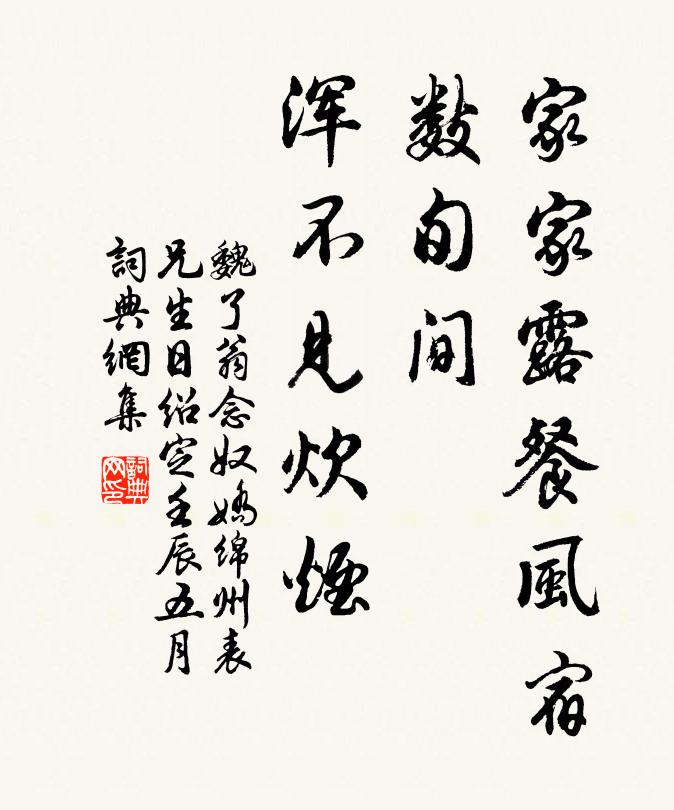 家家露餐風宿
数旬间
浑不見炊煙
魏了翁念奴嬌绵州表
兄生日绍定壬辰五月
詞典網集
詞典网印